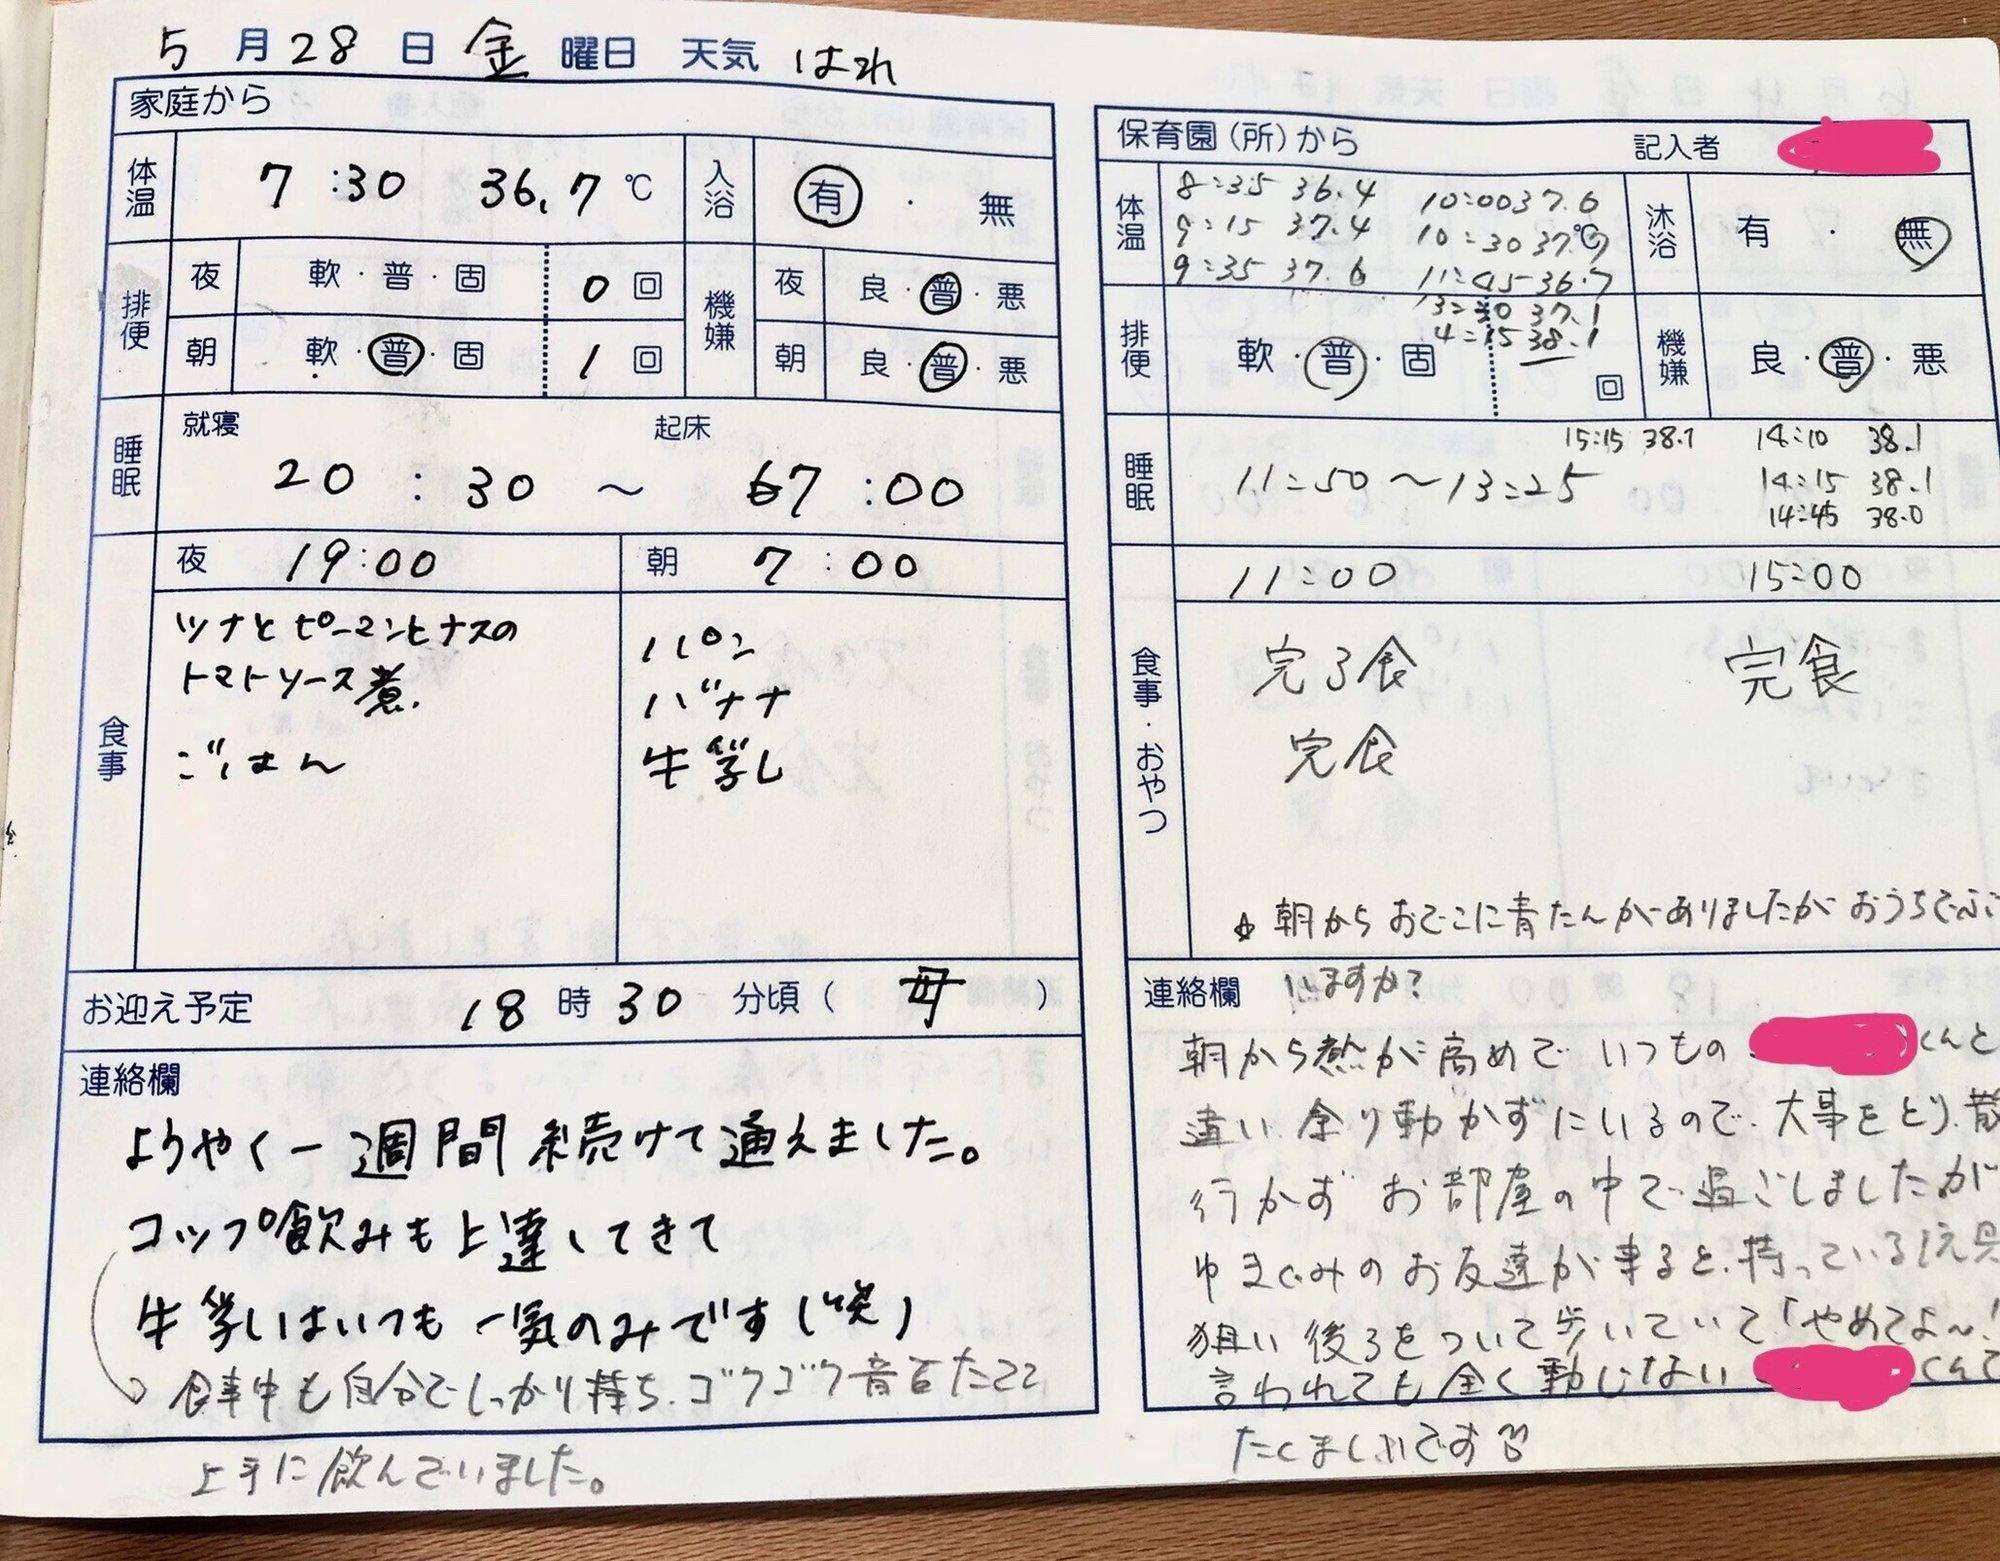 5月28日 金曜日 天気 はれ
家庭から
体温 7:30 36.7℃ 入浴 有・無
排便 夜 軟・普・固 0回 機嫌 夜 良・普・悪
朝 軟・普・固 1回 朝 良・普・悪
睡眠 就寝 起床
20:30 ～ 7:00
食事 夜 19:00 朝 7:00
ツナとピーマンとナスの
トマトソース煮.
ごはん
パン
バナナ
牛乳
お迎え予定 18時30分頃(母)
連絡欄
ようやく一週間続けて通えました。
コップ飲みも上達してきて
牛乳はいつも一気のみです(笑)
食事中も自分でしっかり持ち、ゴクゴク音をたてて
上手に飲んでいました。
保育園(所)から 記入者
体温 8:35 36.4 10:00 37.6 沐浴 有・無
9:15 37.4 10:30 37.7℃
9:35 37.6 11:45 36.7
13:30 37.1
4:15 38.1
排便 軟・普・固 回 機嫌 良・普・悪
15:15 38.1 14:10 38.1
睡眠 11:50～13:25 14:15 38.1
14:45 38.0
食事・おやつ 11:00 15:00
完了食 完食
完食
☆朝からおでこに青たんがありましたがおうちでぶつ
連絡欄 いますか?
朝から熱が高めでいつもの くんと
違い、余り動かずにいるので、大事をとり、散
行かずお部屋の中で過ごしましたが
ゆまぐみのお友達が来ると、持っている玩具
狙い後ろをついて歩いていて「やめてよ～!
言われても全く動じない くんで
たくましいです